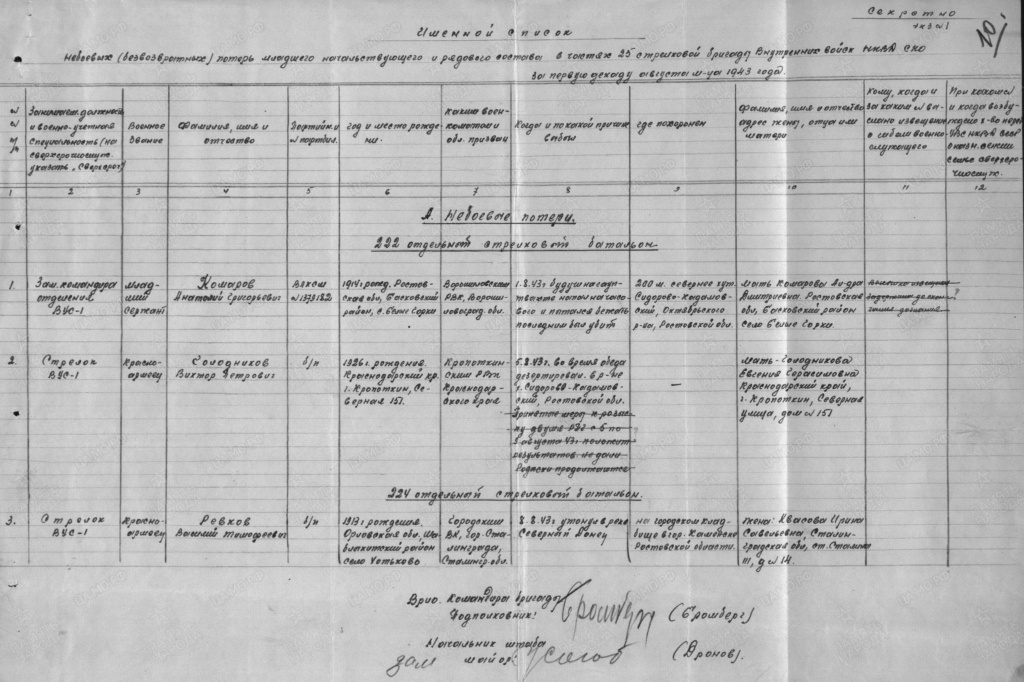 Секретно
экз №1
10
Именной список
небоевых (безвозвратных) потерь младшего начальствующего и рядового состава в частях 25 стрелковой бригады Внутренних войск НКВД СКО
за первую декаду августа м-ца 1943 года.
№№ п/п
Занимаем. должность
и военно-учетная
специальность (на
сверхсрочнослуж.
указать „сверхсроч")
Военное
звание
Фамилия, имя и
отчество
Партийн. и
№ партбил.
год и место рожде-
ния.
каким воен-
коматом и
обл. призван
Когда и по какой причине
выбыл
где похоронен
Фамилия, имя и отчество
адрес жены, отца или
матери
Кому, когда и
за каким №
извещение
о гибели военно-
служащего
При каком №
и когда
НКВД СССР
семье сверхсроч-
нослуж.
1 2 3 4 5 6 7 8 9 10 11 12
А. Небоевые потери.
222 отдельный стрелковый батальон.
1.
Зам. командира
отделения
ВУС-1
Млад-
ший
сержант
Комаров
Анатолий Григорьевич
ВЛКСМ
1914г рожд. Ростов-
ская обл, Басковский
район, с. Белые Горки
Ворошиловским
РВК, Вороши-
ловоград. обл.
1.8.43г будучи на гаупт-
вахте напал на часо-
вого и пытался бежать
последним был убит
200 м. севернее хут.
Сидорово-Кадамов-
ский, Октябрьского
р-на, Ростовской обл.
Мать Комарова Ал-дра
Дмитриевна. Ростовская
обл, Басковский район
село Белые Горки.
2.
Стрелок
ВУС-1
Красно-
армеец
Голодников
Виктор Петрович
б/п
1926г. рождения
Краснодарский кр.
г. Кропоткин, Се-
верная 151.
Кропоткин-
ским РВК
Краснодар-
ского края
5.8.43г. во время обеда
дезертировал. в р-не
х. Сидорово-Кадамов-
ский, Ростовской обл.
Принятые меры к розыс-
ку двумя РПГ с 5 по
8 августа 43г. положит
результатов не дали
Розыски продолжаются
—
мать-Голодникова
Евгения Герасимовна
Краснодарский край,
г. Кропоткин, Северная
улица, дом № 151
224 отдельный стрелковый батальон.
3.
Стрелок
ВУС-1
Красно-
армеец
Ревков
Василий Тимофеевич
б/п
1913г рождения.
Орловская обл. Ша-
блыкинский район
село Хотьково
Городским
ВК, гор. Ста-
линграда,
Сталингр. обл.
8.8.43г утонул в реке
Северный Донец
на городском клад-
бище в гор. Каменске
Ростовской области.
жена: Квасова Ирина
Савельевна, Сталин-
градская обл, ст. Сталина
III, д № 14.
Врио. Командира бригады
Подполковник:
(Бромберг)
Начальник штаба
зам майор:
(Дронов).